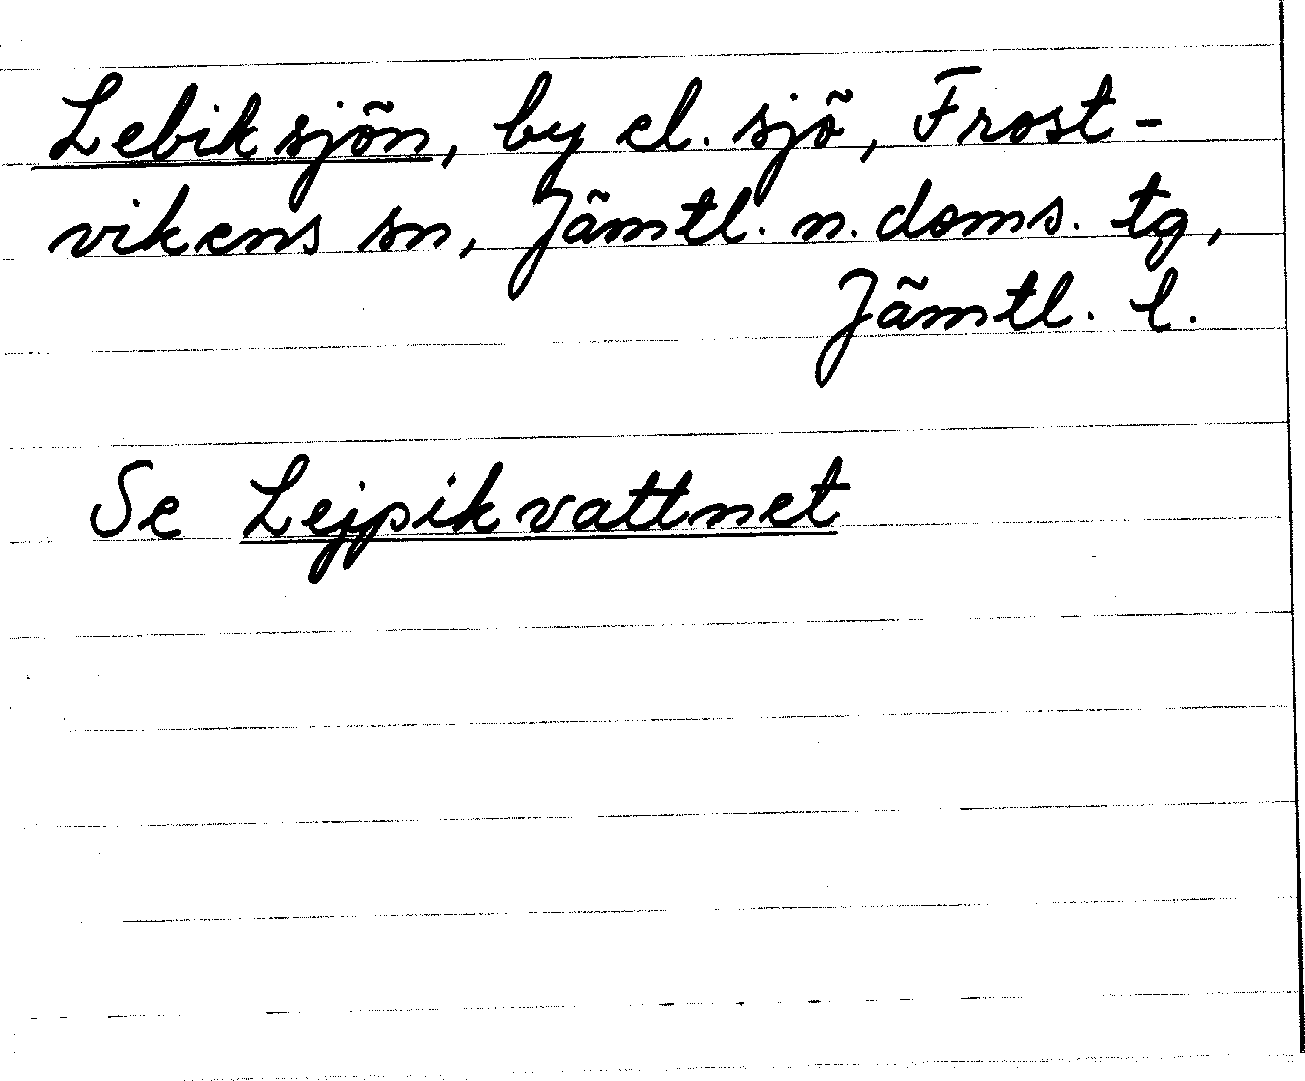 Lebiksjön, by el. sjö, Frost-
vikens sn, Jämtl. n. doms. tg,
Jämtl. l.
Se Lejpikvattnet